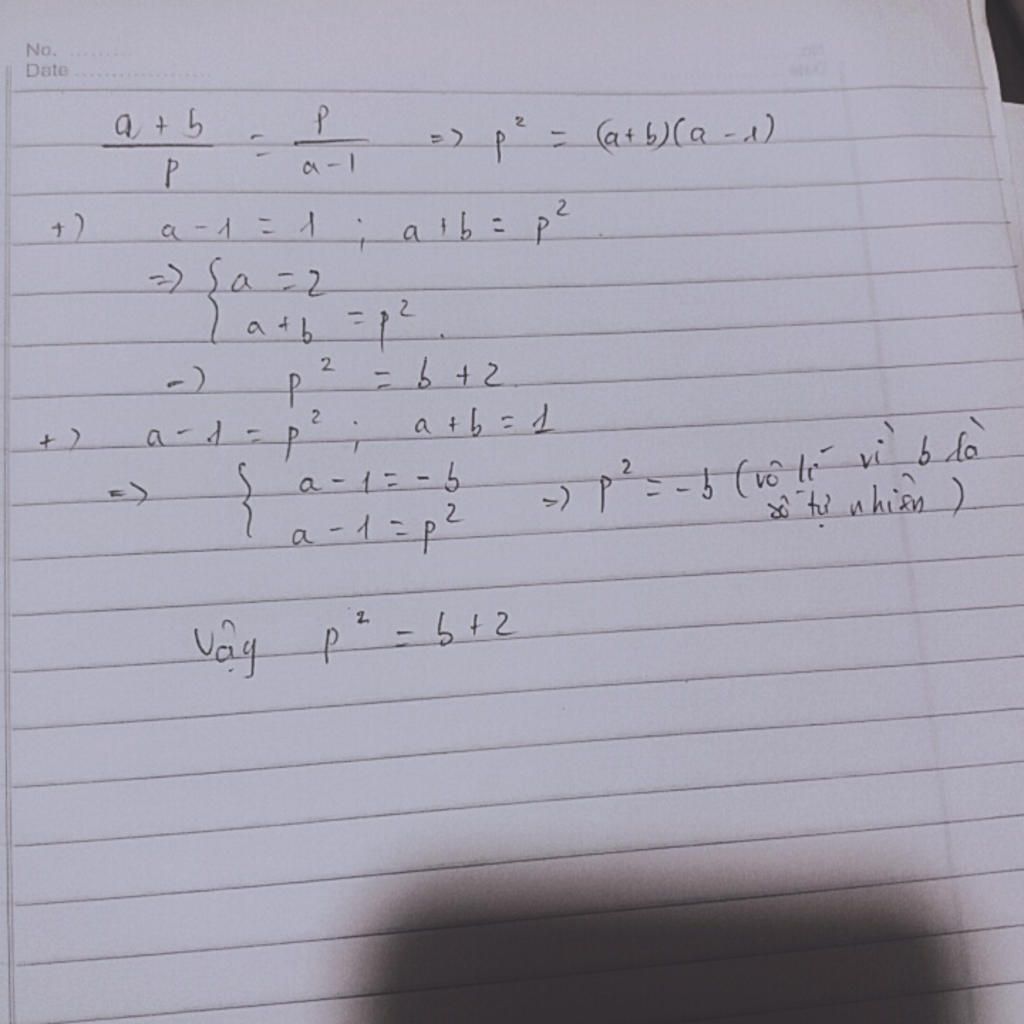 No. ..........
Date ....................
a + b / p = p / a - 1 => p² = (a+b)(a - 1)
+) a - 1 = 1 ; a + b = p².
=> { a = 2
a + b = p².
-) p² = b + 2.
+) a - 1 = p² ; a + b = 1
=> { a - 1 = - b => p² = - b (vô lí vì b là
a - 1 = p² số tự nhiên)
Vậy p² = b + 2